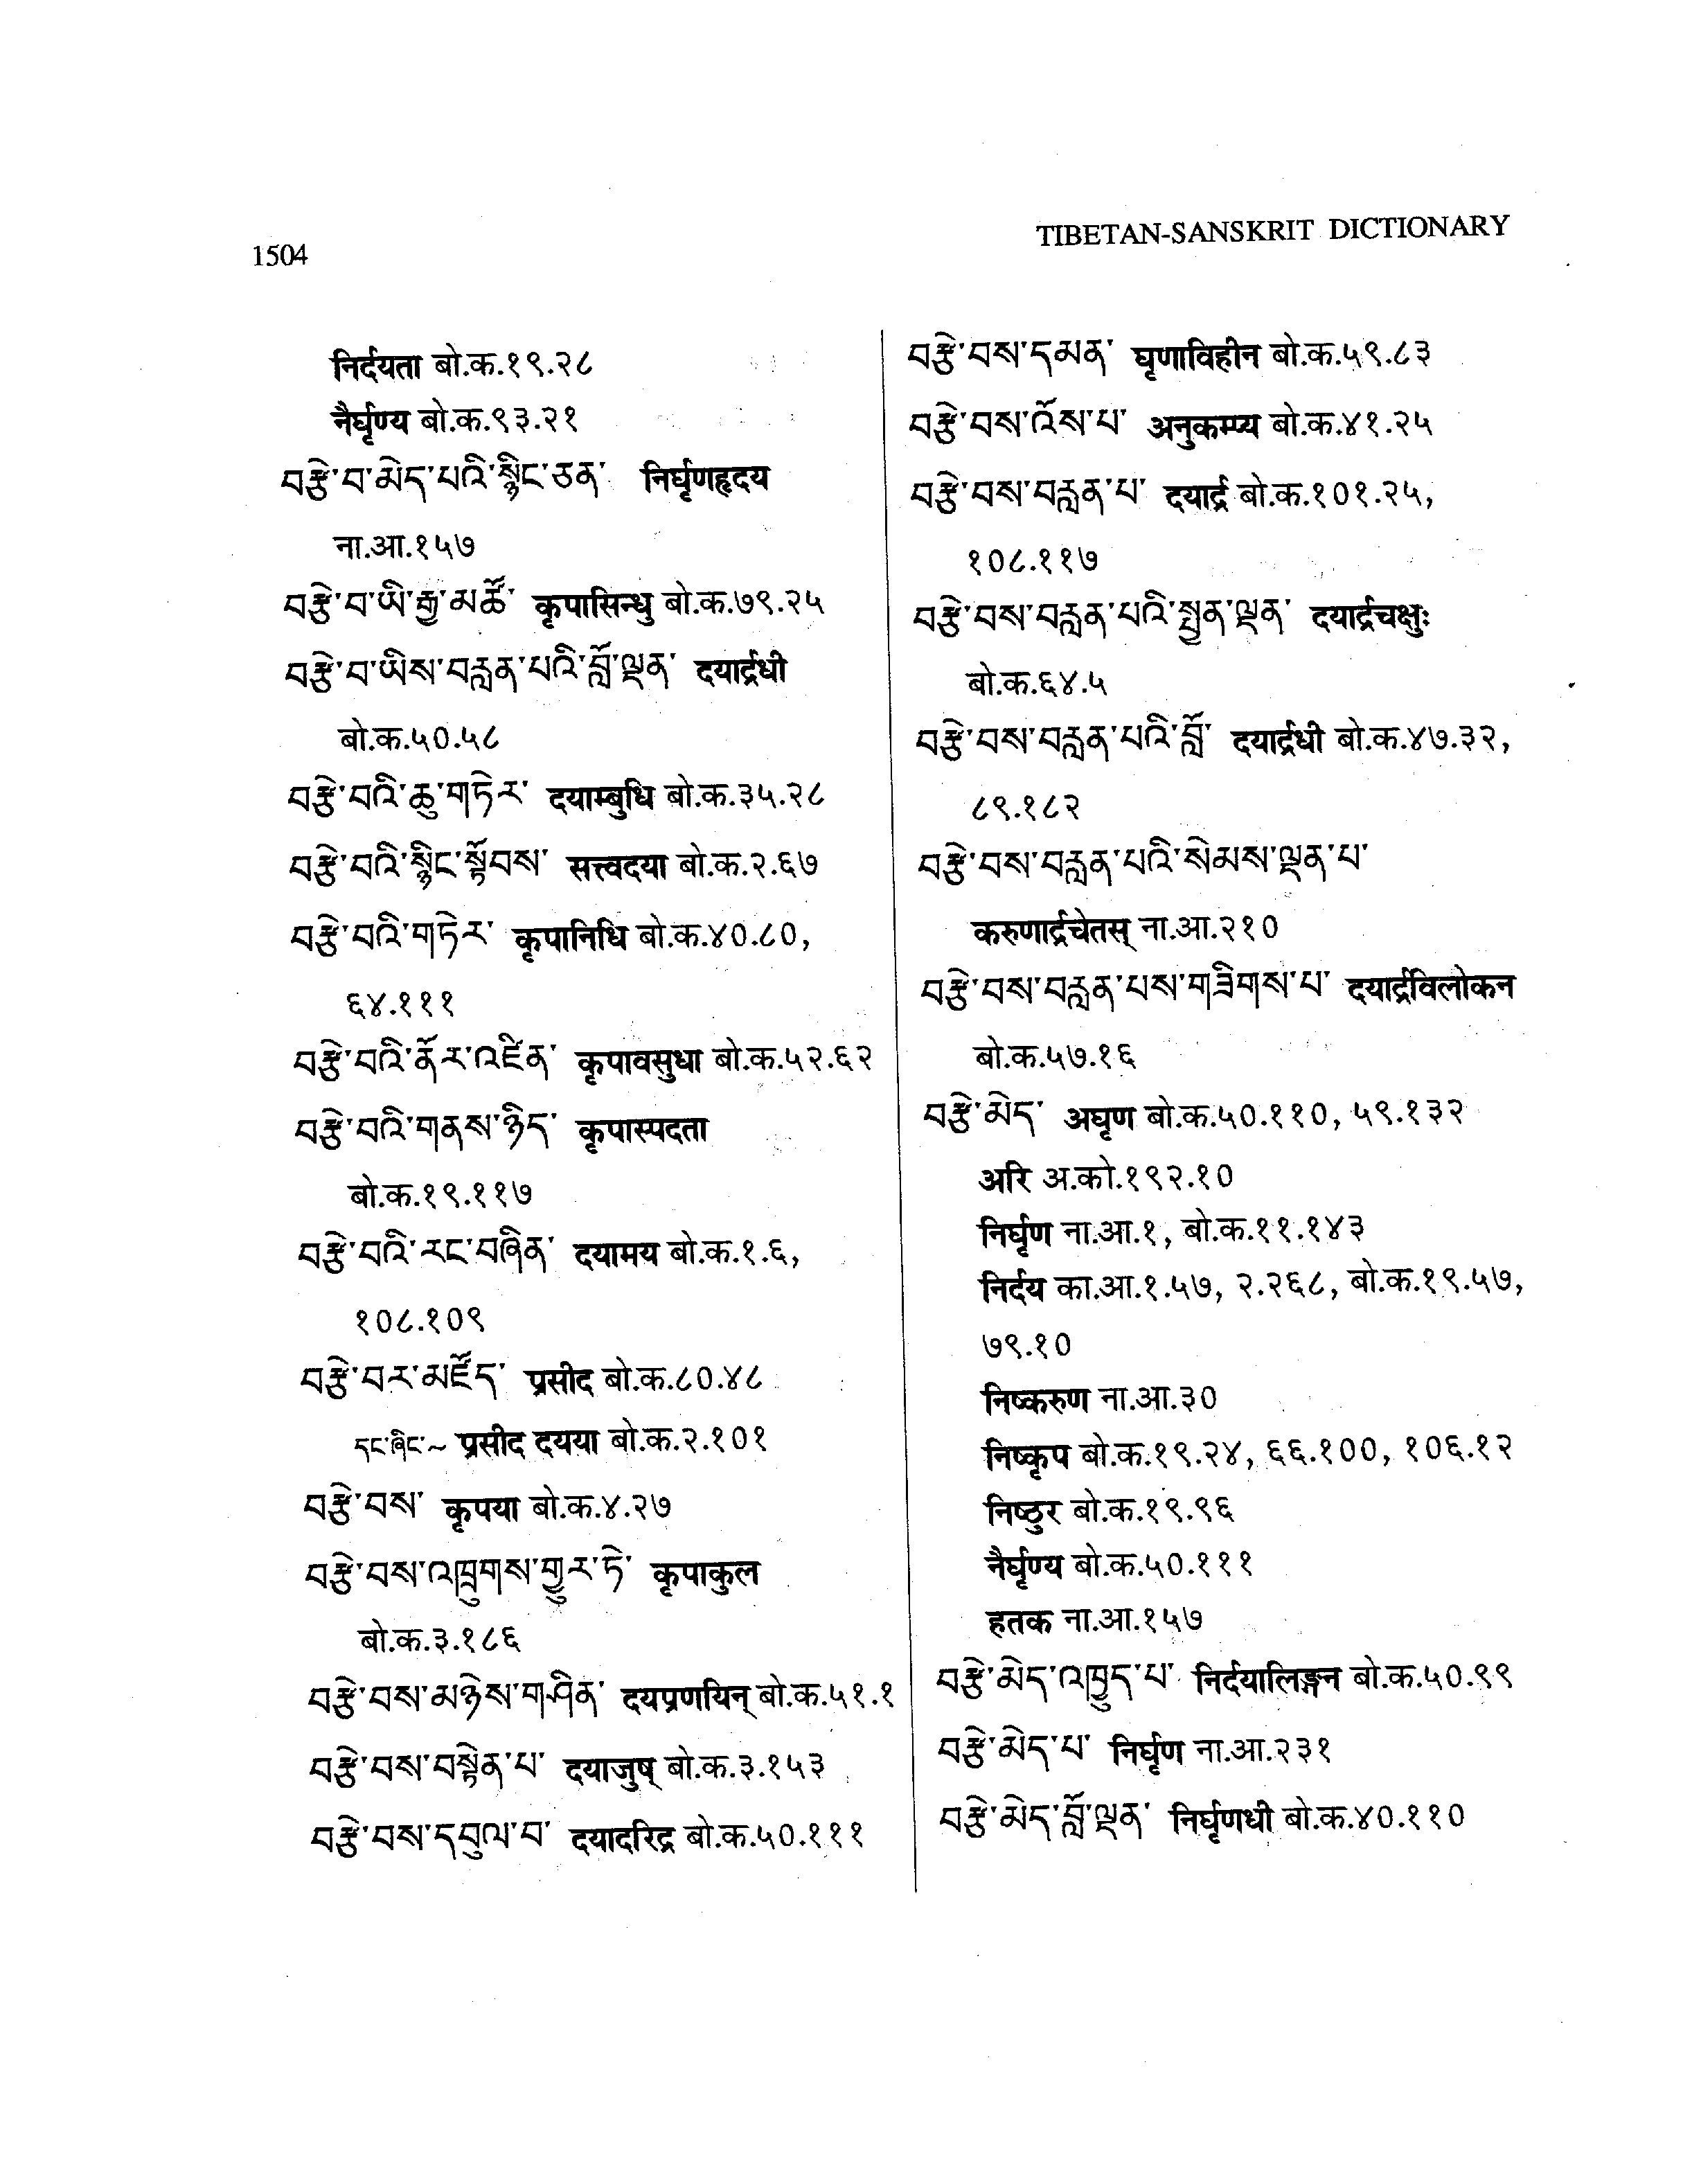 1504
TIBETAN-SANSKRIT DICTIONARY
निर्दयता बो.क.१९.२८
नैर्घृण्य बो.क.९३.२१
བརྩེ་བ་མེད་པའི་སྙིང་ཅན་ निर्घृणहृदय
ना.आ.१५७
བརྩེ་བ་ཡི་རྒྱ་མཚོ་ कृपासिन्धु बो.क.७९.२५
བརྩེ་བ་ཡིས་བརླན་པའི་བློ་ལྡན་ दयार्द्रधी
बो.क.५०.५८
བརྩེ་བའི་ཆུ་གཏེར་ दयाम्बुधि बो.क.३५.२८
བརྩེ་བའི་སྙིང་སྟོབས་ सत्त्वदया बो.क.२.६७
བརྩེ་བའི་གཏེར་ कृपानिधि बो.क.४०.८०,
६४.१११
བརྩེ་བའི་ནོར་འཛིན་ कृपावसुधा बो.क.५२.६२
བརྩེ་བའི་གནས་ཉིད་ कृपास्पदता
बो.क.१९.११७
བརྩེ་བའི་རང་བཞིན་ दयामय बो.क.१.६,
१०८.१०९
བརྩེ་བར་མཛོད་ प्रसीद बो.क.८०.४८
དང་ཞིང་~ प्रसीद दयया बो.क.२.१०१
བརྩེ་བས་ कृपया बो.क.४.२७
བརྩེ་བས་འཁྲུགས་གྱུར་ཏེ་ कृपाकुल
बो.क.३.१८६
བརྩེ་བས་མཉེས་གཤིན་ दयप्रणयिन् बो.क.५१.१
བརྩེ་བས་བསྟེན་པ་ दयाजुष् बो.क.३.१५३
བརྩེ་བས་དབུལ་བ་ दयादरिद्र बो.क.५०.१११
བརྩེ་བས་དམན་ घृणाविहीन बो.क.५९.८३
བརྩེ་བས་འོས་པ་ अनुकम्प्य बो.क.४१.२५
བརྩེ་བས་བརླན་པ་ दयार्द्र बो.क.१०१.२५,
१०८.११७
བརྩེ་བས་བརླན་པའི་སྤྱན་ལྡན་ दयार्द्रचक्षुः
बो.क.६४.५
བརྩེ་བས་བརླན་པའི་བློ་ दयार्द्रधी बो.क.४७.३२,
८९.१८२
བརྩེ་བས་བརླན་པའི་སེམས་ལྡན་པ་
करुणार्द्रचेतस् ना.आ.२१०
བརྩེ་བས་བརླན་པས་གཟིགས་པ་ दयार्द्रविलोकन
बो.क.५७.१६
བརྩེ་མེད་ अघृण बो.क.५०.११०, ५९.१३२
अरि अ.को.१९२.१०
निर्घृण ना.आ.१, बो.क.११.१४३
निर्दय का.आ.१.५७, २.२६८, बो.क.१९.५७,
७९.१०
निष्करुण ना.आ.३०
निष्कृप बो.क.१९.२४, ६६.१००, १०६.१२
निष्ठुर बो.क.१९.९६
नैर्घृण्य बो.क.५०.१११
हतक ना.आ.१५७
བརྩེ་མེད་འཁྱུད་པ་ निर्दयालिङ्गन बो.क.५०.९९
བརྩེ་མེད་པ་ निर्घृण ना.आ.२३१
བརྩེ་མེད་བློ་ལྡན་ निर्घृणधी बो.क.४०.११०